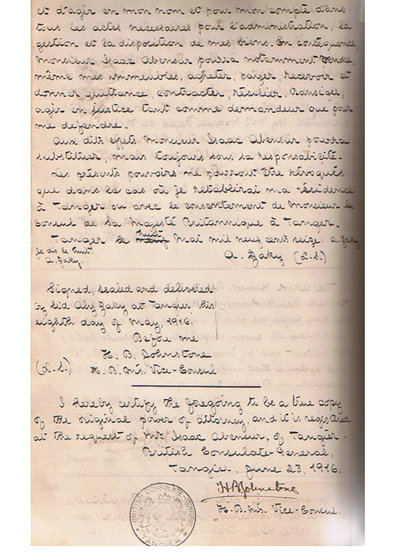 et d'agir en mon nom et pour mon compte dans
tous les actes nécessaires pour l'administration, la
gestion et la disposition de mes biens. En conséquence
monsieur Isaac Abensur pourra notamment vendre,
même mes immeubles, acheter, payer, recevoir et
donner quittance, contracter, résilier, transiger,
agir en justice tant comme demandeur que pour
me défendre.
Aux dits effets monsieur Isaac Abensur pourra
substituer, mais toujours sous sa responsabilité.
Les présents pouvoirs ne pourront être révoqués
que dans le cas où je rétablirai ma résidence
à Tanger ou avec le consentement de monsieur le
Consul de Sa Majesté Britannique à Tanger.
Tanger le huit mai mil neuf cent seize. A. Zaky
Je dis le huit
A. Zaky.
A. Zaky (L.S.)
Signed, sealed and delivered
by Sid Aly Zaky at Tangier this
eighth day of May, 1916.
Before me
H. B. Johnstone
(L.S.) H.B.M's Vice-Consul
I hereby certify the foregoing to be a true copy
of the original power of attorney, and it is registered
at the request of Mr. Isaac Abensur, of Tangier.
British Consulate-General,
Tangier, June 23, 1916.
HBJohnstone
H.B.M's. Vice-Consul.